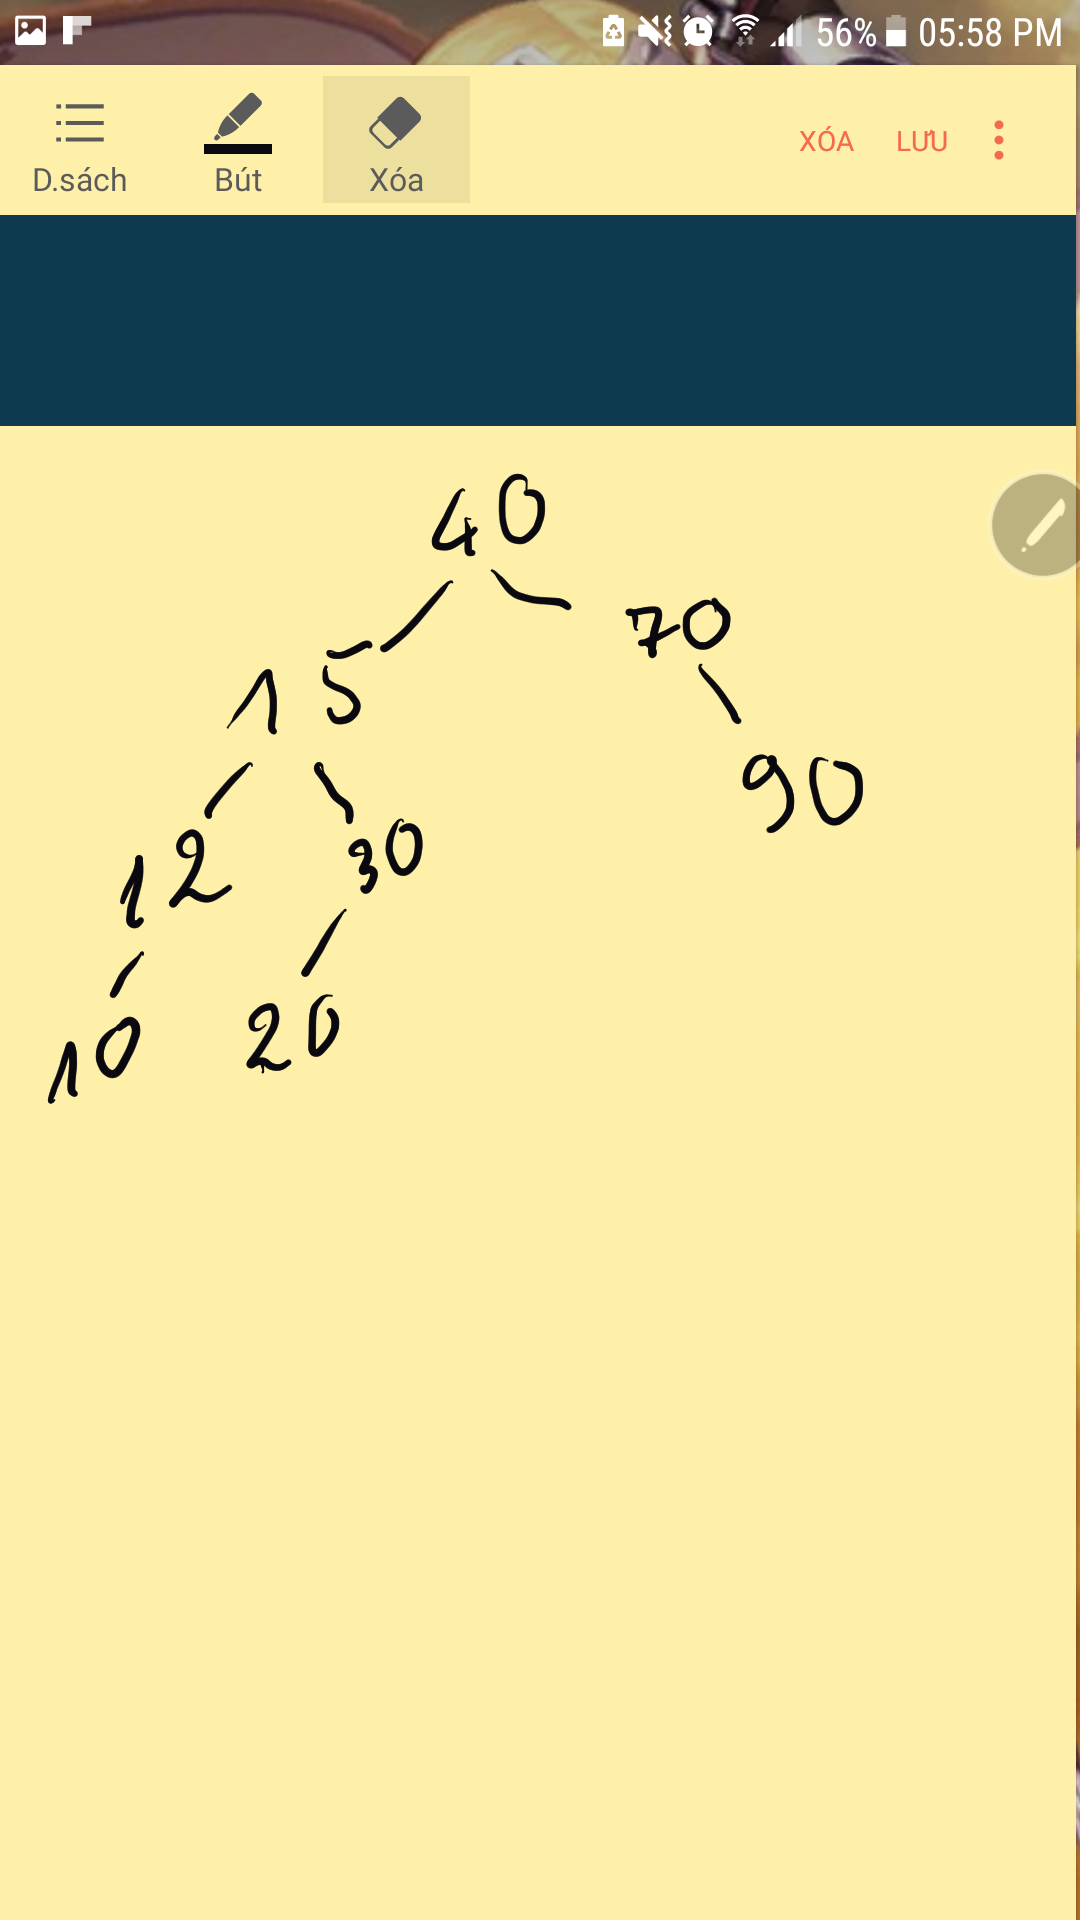 56% 05:58 PM
D.sách Bút Xóa XÓA LƯU
40
15 70
12 30 90
10 20